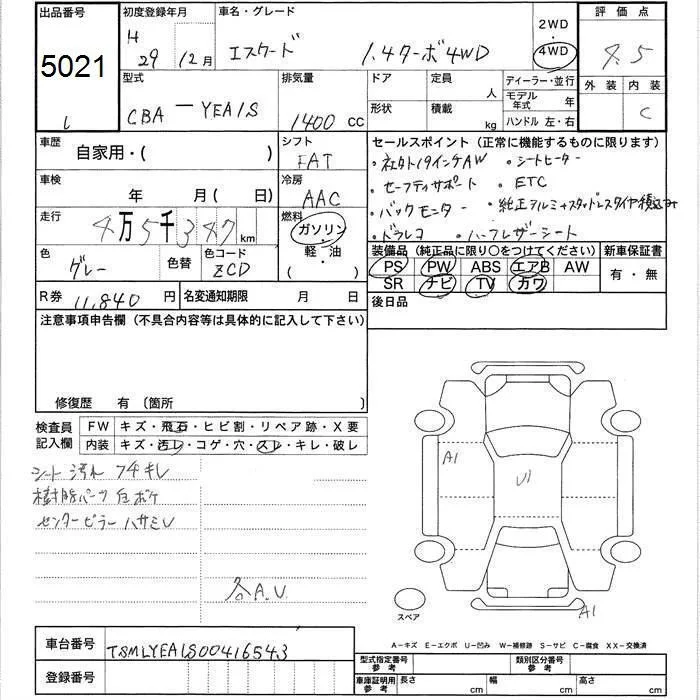 出品番号 初度登録年月 車名・グレード 2WD 評価点
5021 H 29年12月 エスクード 1.4ターボ4WD 4WD 4.5
型式 排気量 ドア 定員 人 ディーラー・並行 外装 内装
CBA-YEA1S 1400cc 形状 積載 kg モデル年式 年 C
ハンドル 左・右
車歴 自家用・( ) シフト FAT セールスポイント(正常に機能するものに限ります)
・社外19インチAW ・シートヒーター
車検 年 月(日) 冷房 AAC ・セーフティサポート ・ETC
・バックモニター ・純正アルミ+スタッドレスタイヤ積込み
走行 4万5千347km 燃料 ガソリン・軽・油・( ) ・ドラレコ ・ハーフレザーシート
色 グレー 色替 色コード ZCD 装備品(純正品に限り○をつけてください) 新車保証書
PS PW ABS エアB AW 有・無
SR ナビ TV カワ
R券 11,840円 名変通知期限 月 日 後日品
注意事項申告欄(不具合内容等は具体的に記入して下さい)
修復歴 有〔箇所 〕
検査員記入欄 FW キズ・飛石・ヒビ割・リペア跡・X要
内装 キズ・汚レ・コゲ・穴・スレ・キレ・破レ
シート汚れ フチキレ
樹脂パーツ白ボケ
センターピラーハサミU
各A.U
A1
U1
A1
スペア
A-キズ E-エクボ U-凹み W-補修跡 S-サビ C-腐食 XX-交換済
車台番号 TSMLYEA1S00416543
登録番号
型式指定番号参考 類別区分番号参考
車庫証明用参考 長さ cm 幅 cm 高さ cm